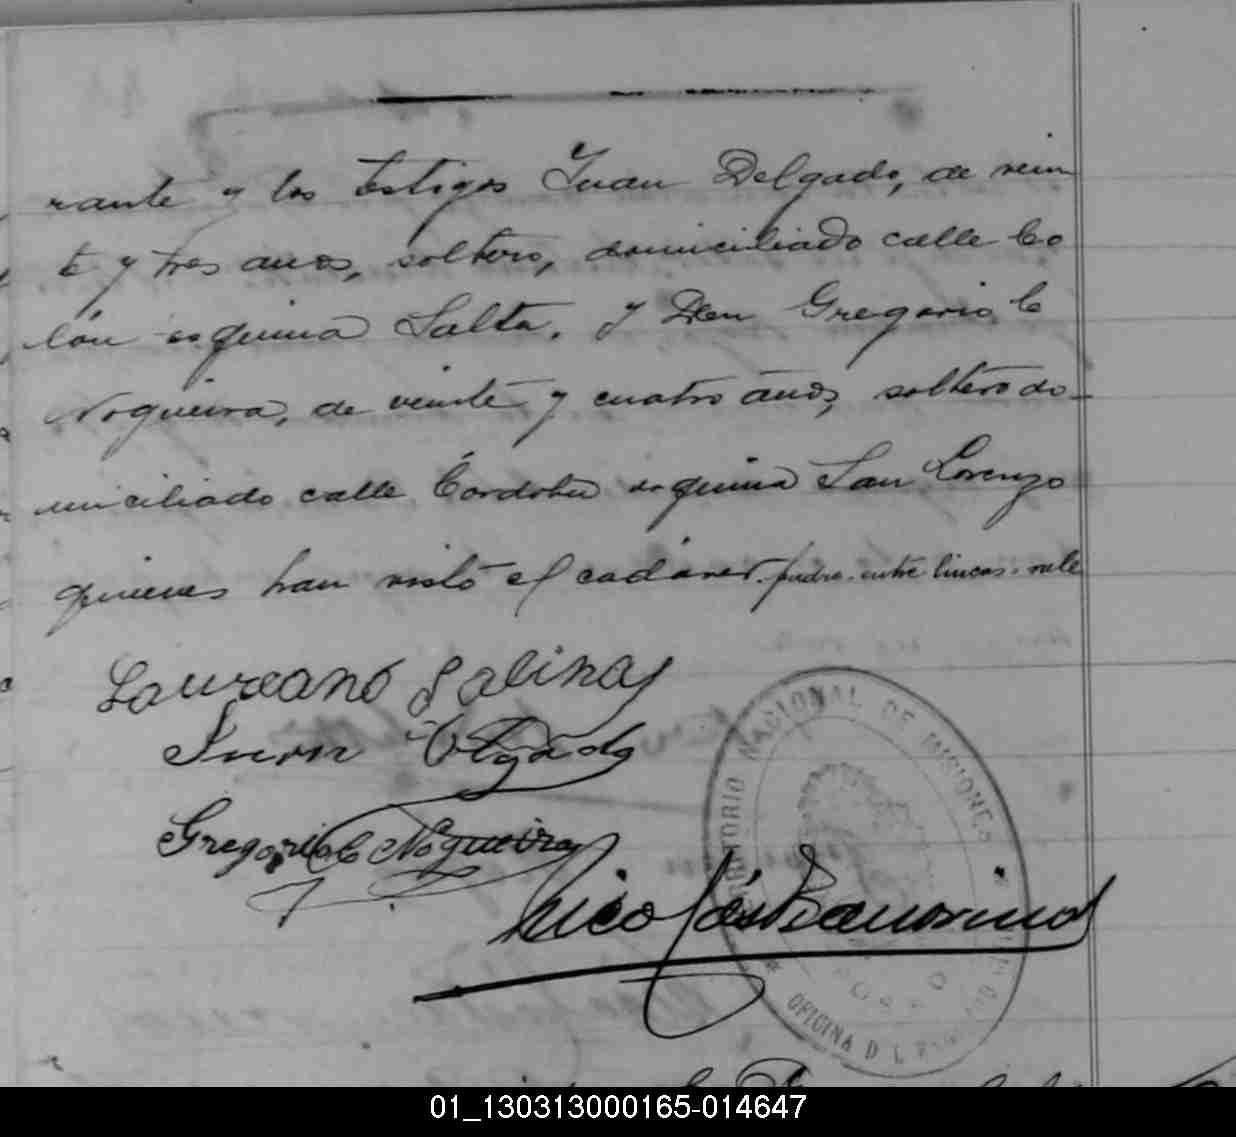 rante y los testigos Juan Delgado, de vein
te y tres anos, soltero, domiciliado calle Co
lón esquina Salta. y Don Gregorio C
Nogueira, de veinte y cuatro anos, soltero do-
miciliado calle Córdoba esquina San Lorenzo
quienes han visto el cadáver. padre. entre lineas. vale
Laureano Salinas
Juan Delgado
Gregorio C Nogueira
Nicolás
TERRITORIO NACIONAL DE MISIONES
OFICINA DEL REGISTRO CIVIL
POSADAS
01_130313000165-014647